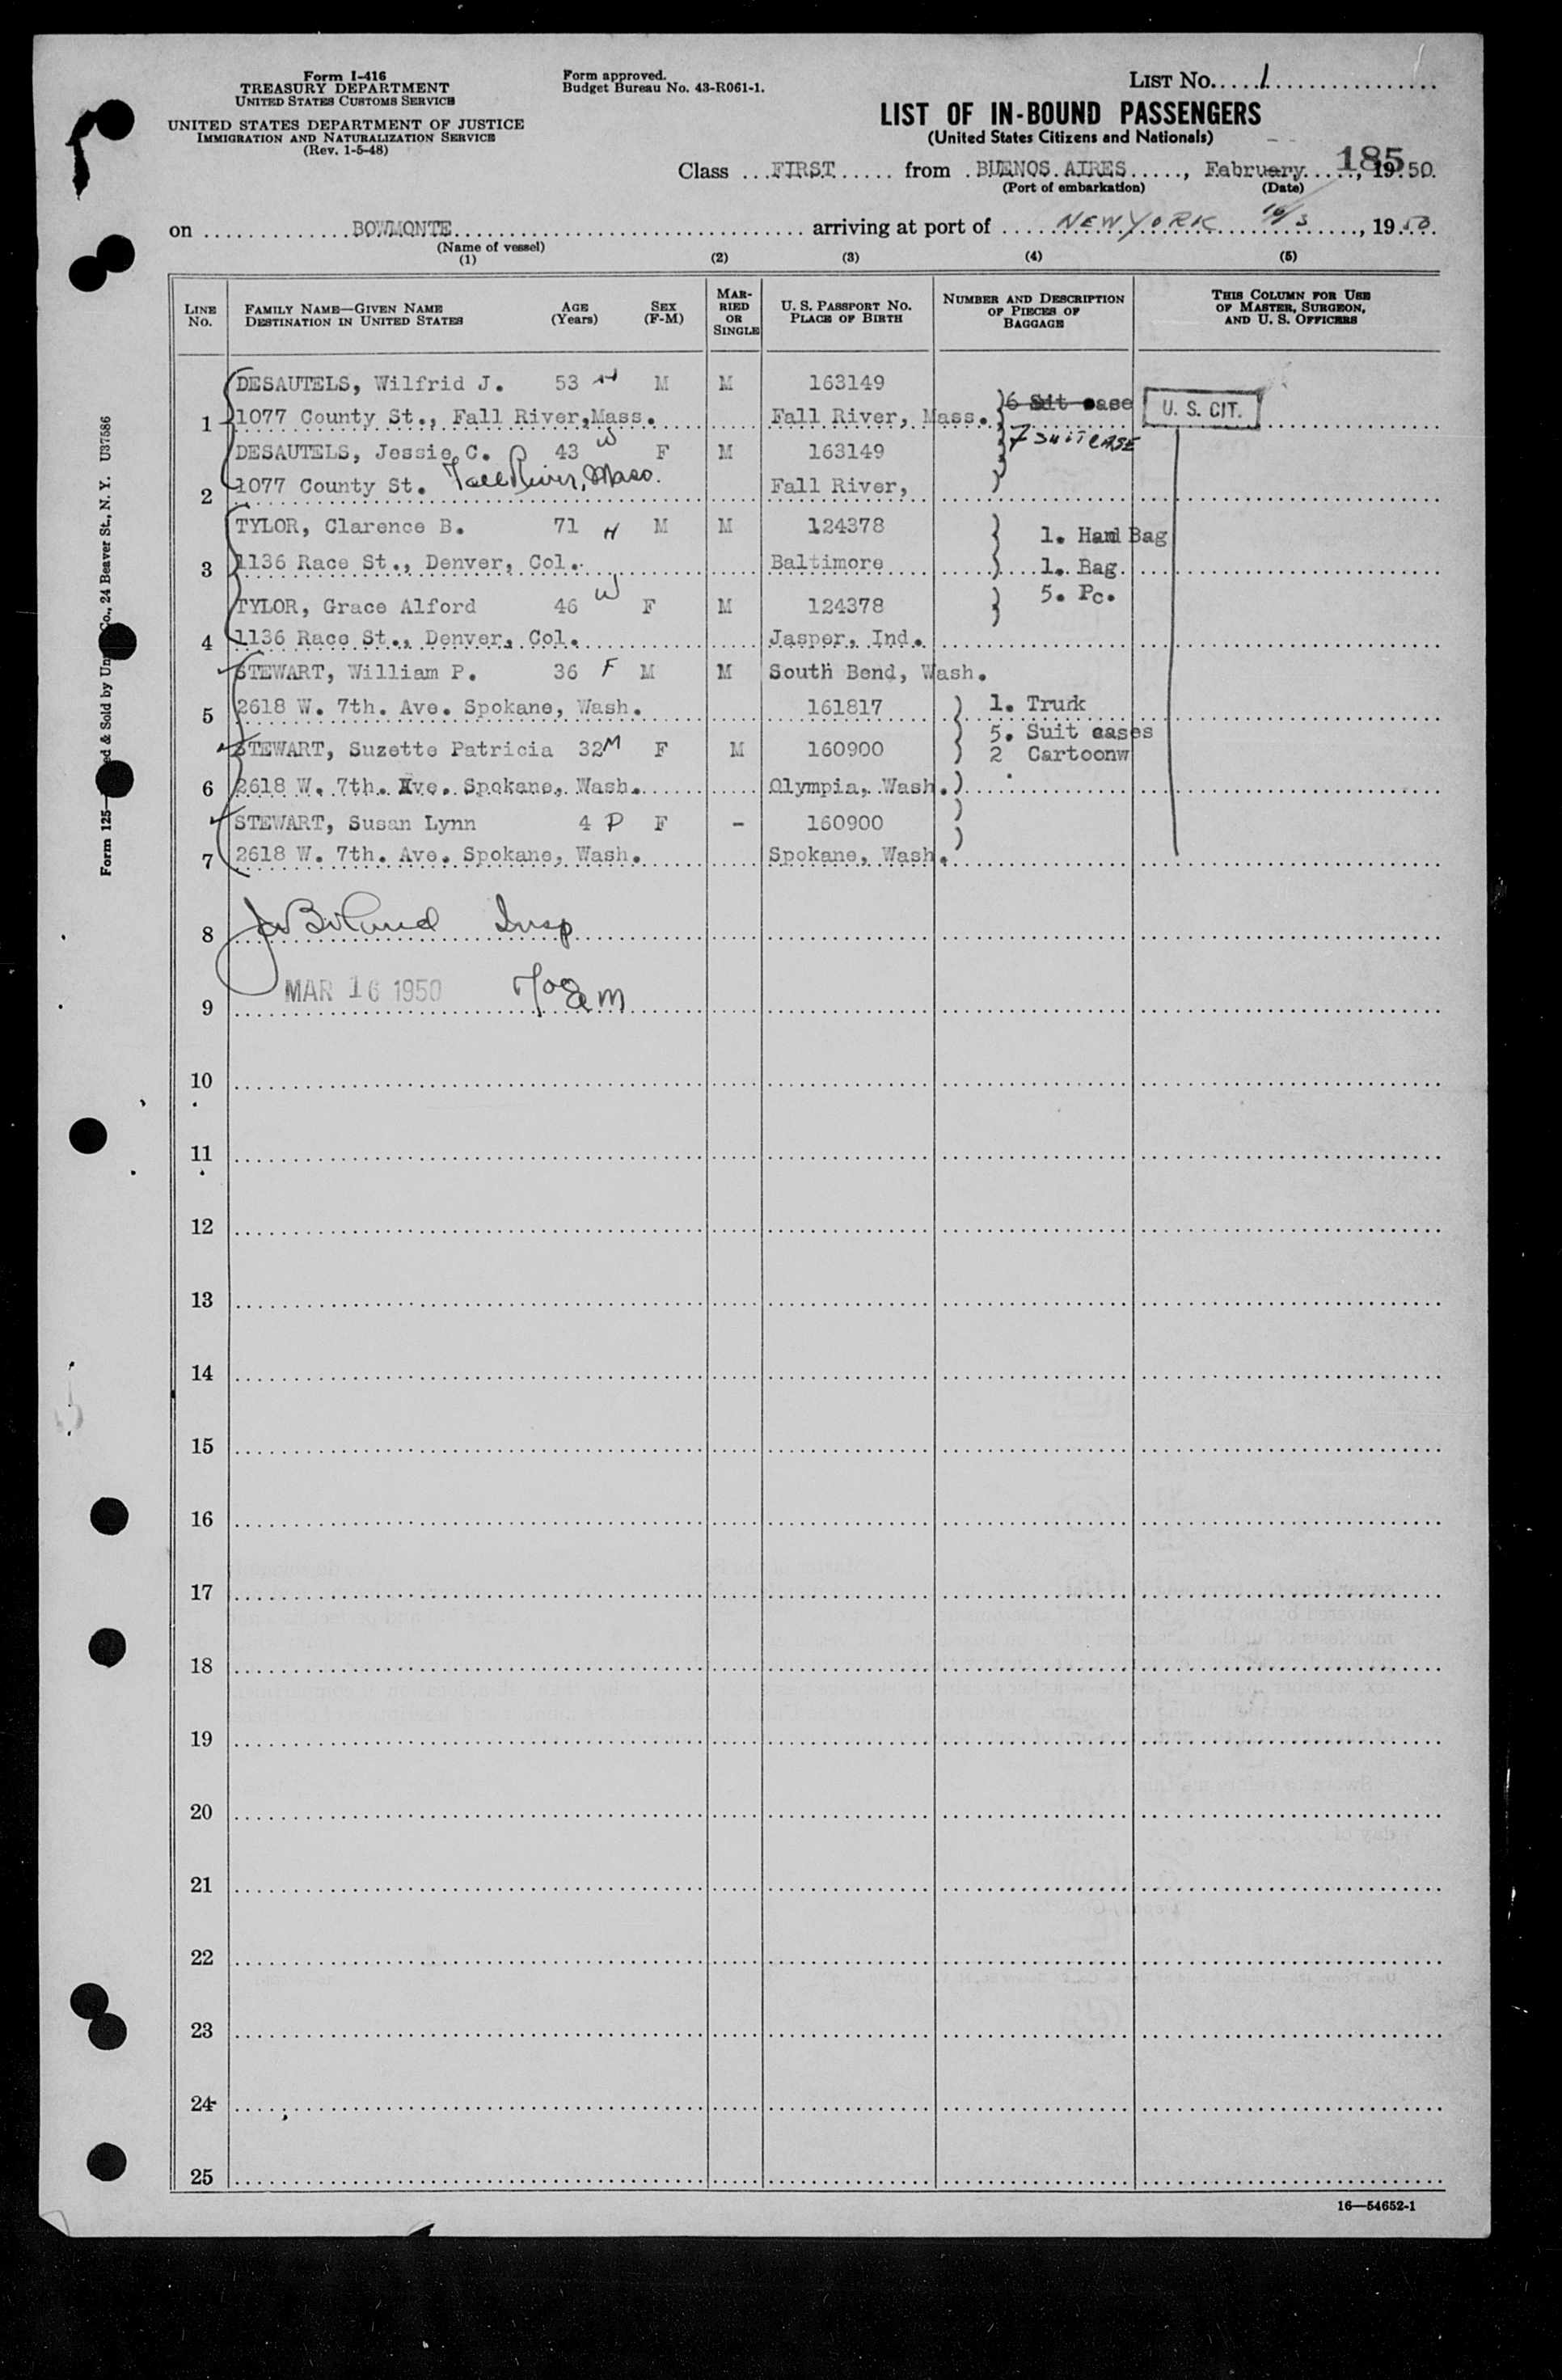 Form I-416
TREASURY DEPARTMENT
UNITED STATES CUSTOMS SERVICE
UNITED STATES DEPARTMENT OF JUSTICE
IMMIGRATION AND NATURALIZATION SERVICE
(Rev. 1-5-48)
Form approved.
Budget Bureau No. 43-R061-1.
LIST No. 1
LIST OF IN-BOUND PASSENGERS
(United States Citizens and Nationals)
185
Class FIRST from BUENOS AIRES, February, 1950
(Port of embarkation) (Date)
on BOWMONTE arriving at port of NEW YORK 16/3, 1950
(Name of vessel)
(1) (2) (3) (4) (5)
LINE No. FAMILY NAME—GIVEN NAME DESTINATION IN UNITED STATES AGE (Years) SEX (F-M) MARRIED OR SINGLE U. S. PASSPORT NO. PLACE OF BIRTH NUMBER AND DESCRIPTION OF PIECES OF BAGGAGE THIS COLUMN FOR USE OF MASTER, SURGEON, AND U. S. OFFICERS
DESAUTELS, Wilfrid J. 53 H M M 163149
6 Suit case U. S. CIT.
1 1077 County St., Fall River, Mass. Fall River, Mass.
7 SUITCASE
DESAUTELS, Jessie C. 43 W F M 163149
2 1077 County St. Fall River, Mass. Fall River,
TYLOR, Clarence B. 71 H M M 124378 1. Hand Bag
3 1136 Race St., Denver, Col. Baltimore 1. Bag
TYLOR, Grace Alford 46 W F M 124378 5. Pc.
4 1136 Race St., Denver, Col. Jasper, Ind.
STEWART, William P. 36 F M M South Bend, Wash.
5 2618 W. 7th. Ave. Spokane, Wash. 161817 1. Trunk
5. Suit cases
STEWART, Suzette Patricia 32 M F M 160900 2 Cartoonw
6 2618 W. 7th. Ave. Spokane, Wash. Olympia, Wash.
STEWART, Susan Lynn 4 P F - 160900
7 2618 W. 7th. Ave. Spokane, Wash. Spokane, Wash.
8 Insp
9 MAR 16 1950 am
10
11
12
13
14
15
16
17
18
19
20
21
22
23
24
25
16—54652-1
Form 125— ed & Sold by Un Co., 24 Beaver St., N. Y. U37586